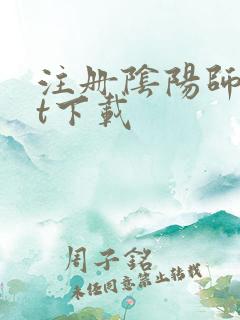 注册陰陽師
t下載
周子銘
未经同意禁止转载